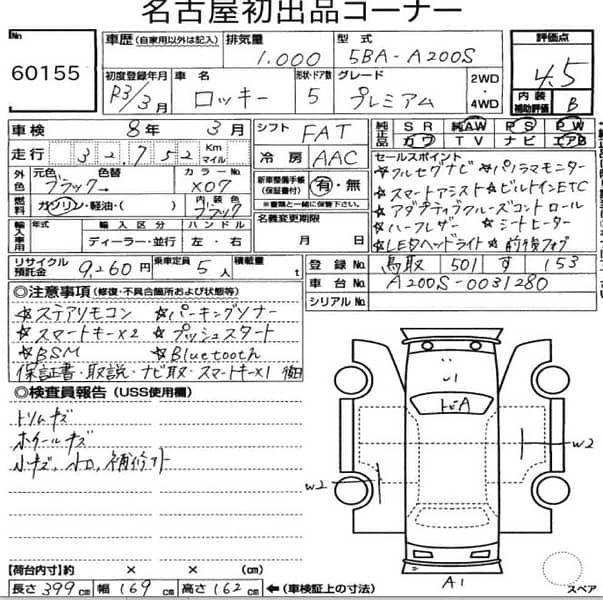 名古屋初出品コーナー
No 60155
車歴 (自家用以外は記入) 排気量 1.000 型式 5BA-A200S 評価点 4.5
初度登録年月 R3/3月 車名 ロッキー 形状・ドア数 5 グレード プレミアム 2WD ・ 4WD 内装補助評価 B
車検 8年 3月 シフト FAT 純正品 SR 純AW PS PW
カワ TV ナビ エアB
走行 3 2.7 5 2 Km マイル 冷房 AAC セールスポイント
外色 元色 ブラック→ 色替 カラーNo X07 新車整備手帳(保証書付) 有・無 ※書類と一緒に保管下さい。
☆フルセグナビ ☆パノラマモニター
☆スマートアシスト ☆ビルトインETC
燃料 ガソリン・軽油・( ) 内装色 ブラック 名義変更期限 月 日
☆アダプティブクルーズコントロール
輸入車用 年式 輸入区分 ディーラー・並行 ハンドル 左・右
☆ハーフレザー ☆シートヒーター
☆LEDヘッドライト ☆前後フォグ
リサイクル預託金 9,260円 乗車定員 5人 積載量 t 登録No. 鳥取 501 す 153
車台No. A200S-0031280
シリアルNo.
◎注意事項 (修復・不具合箇所および状態等)
☆ステアリモコン ☆パーキングソナー
☆スマートキー×2 ☆プッシュスタート
☆BSM ☆Bluetooth
保証書・取説・ナビ取・スマートキー×1 後日
◎検査員報告 (USS使用欄)
トリムキズ
ホイールキズ
小キズ、小凹、補修アト
U1
トビA
W2
W2
A1
スペア
【荷台内寸】約 × × (cm)
長さ 399cm 幅 169cm 高さ 162cm ←(車検証上の寸法)